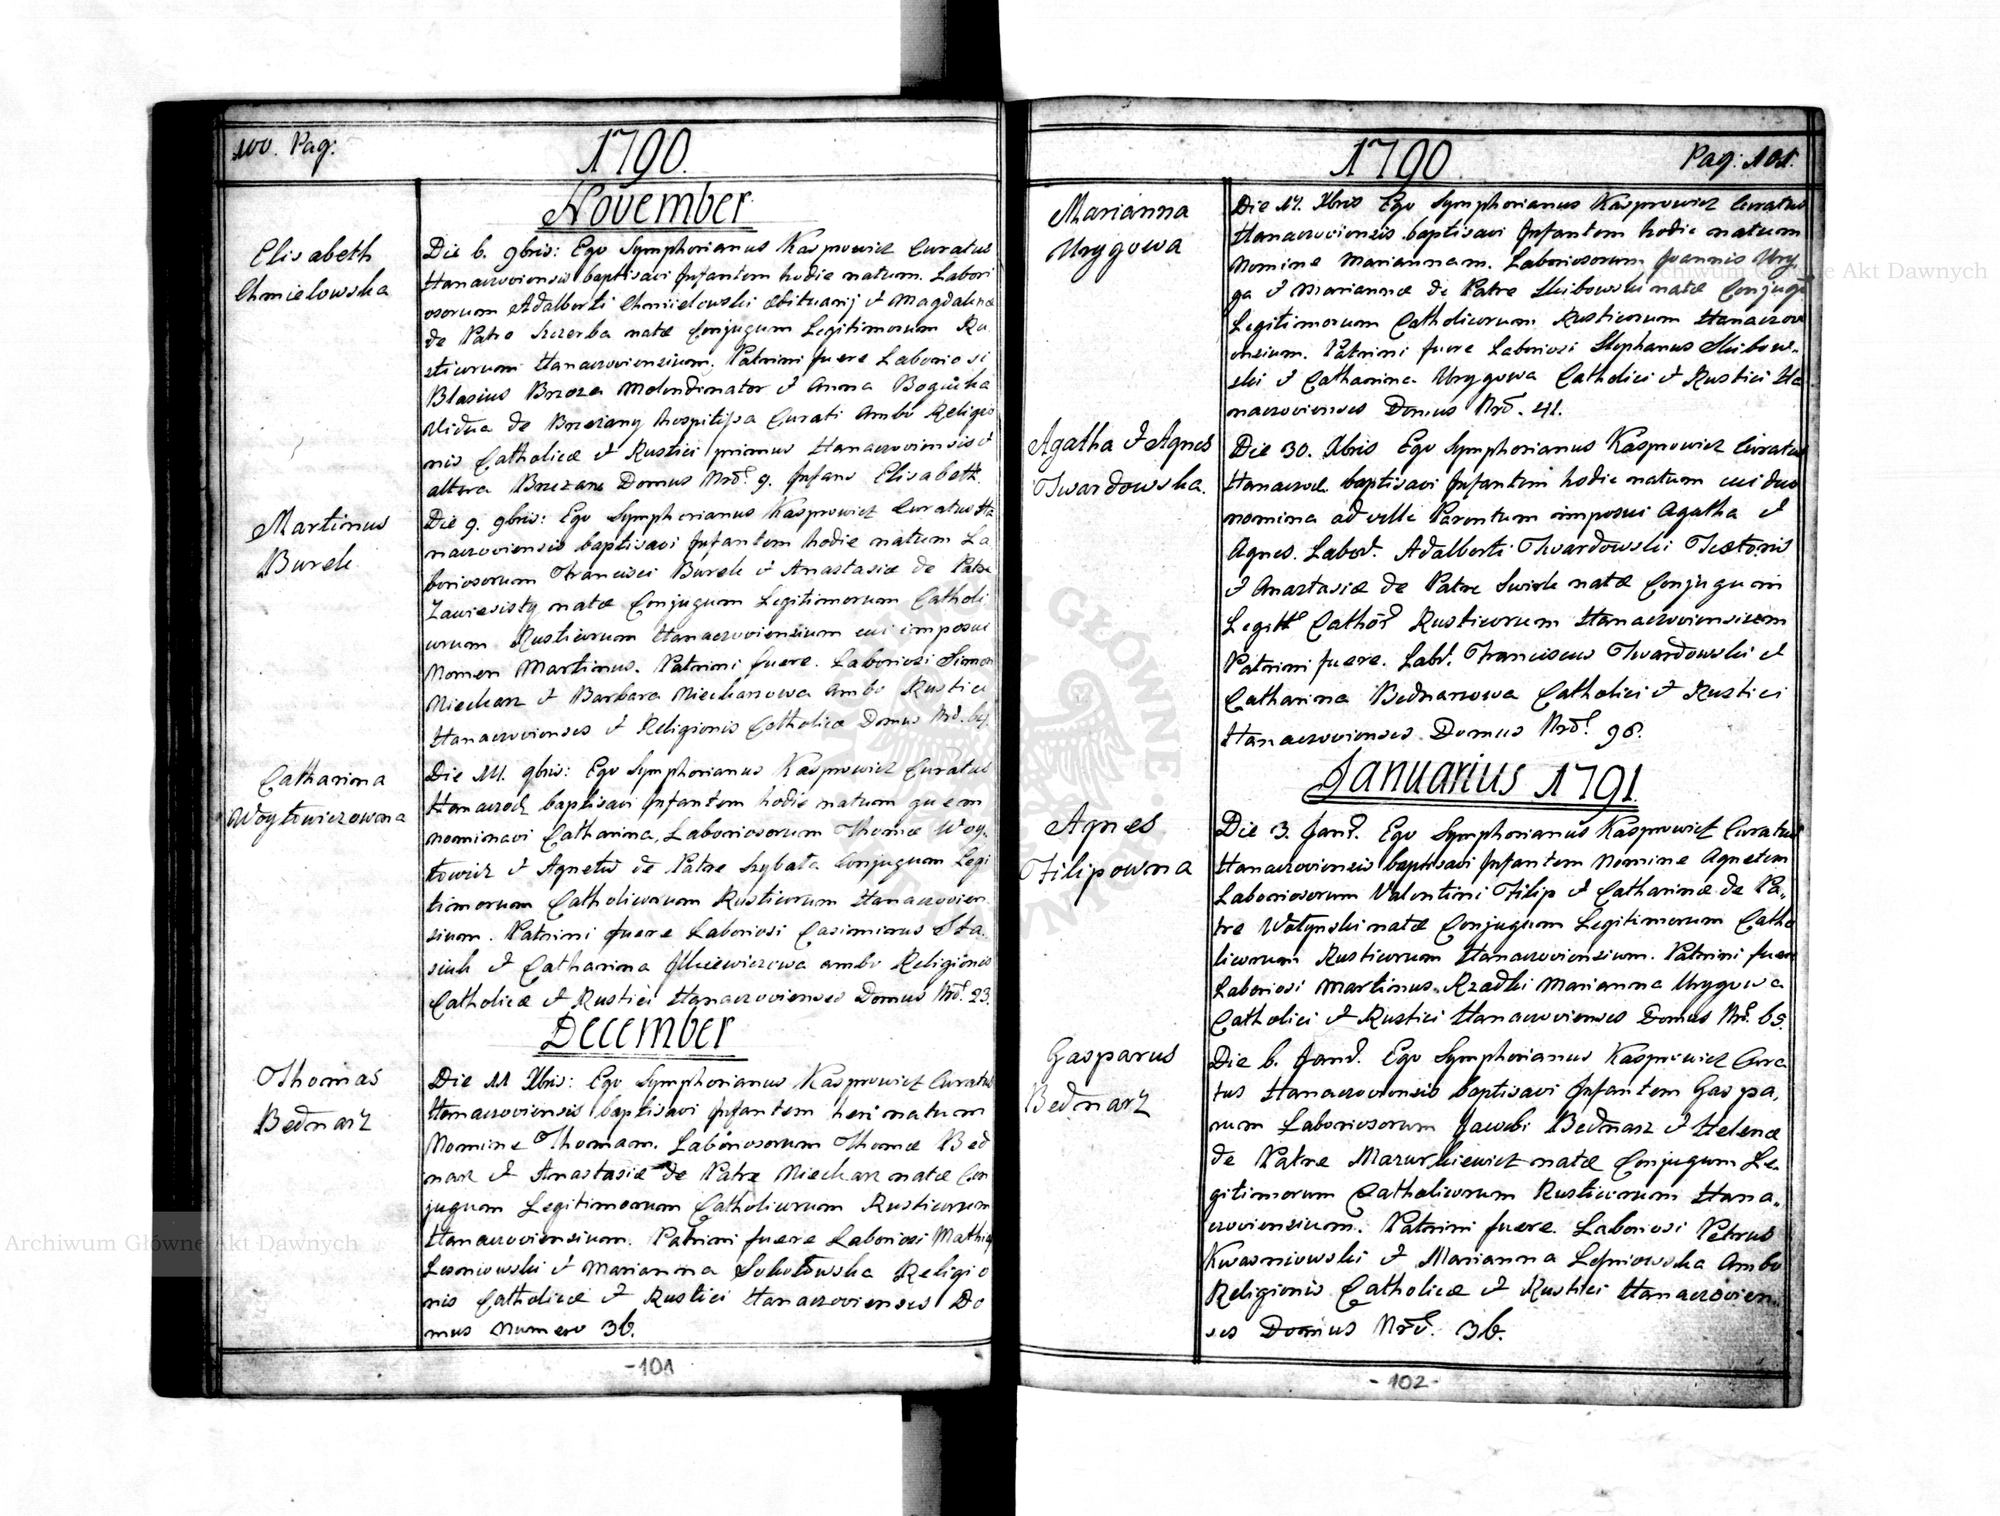 100. Pag:
1790.
November
Elisabeth
Chmielowska
Die 6. 9bris: Ego Symphorianus Kasprowicz Curatus
Hanaczoviensis baptisavi Infantem hodie natum. Labori
osorum Adalberti Chmielowski et Magdalenæ
de Patre Szczerba natæ Conjugum Legitimorum Ru
sticorum Hanaczoviensium. Patrini fuere Laboriosi
Blasius Brzoza Molendinator et Anna
Vidua de Brzezany hospitissa Curati Ambo Religio
nis Catholicæ et Rustici primus Hanaczoviensis et
altera Brzezan Domus Nrō. 9. Infans Elisabeth.
Martinus
Burek
Die 9. 9bris: Ego Symphorianus Kasprowicz Curatus Ha
naczoviensis baptisavi Infantem hodie natum La
boriosorum Francisci Burek et Anastasiæ de Patre
Zawiesisty natæ Conjugum Legitimorum Catholi
corum Rusticorum Hanaczoviensium cui imposui
Nomen Martinus. Patrini fuere. Laboriosi Simon
Niecharz et Barbara Niecharzowa ambo Rustici
Hanaczovienses et Religionis Catholicæ Domus Nrō. 64.
Catharina
Woytowiczowna
Die 14. 9bris: Ego Symphorianus Kasprowicz Curatus
Hanaczov. baptisavi Infantem hodie natum quem
nominavi Catharina, Laboriosorum Thomæ Woy,
towicz et Agnetis de Patre Szybata Conjugum Legi
timorum Catholicorum Rusticorum Hanaczovien
sium. Patrini fuere Laboriosi Casimirus Sta.
siuk et Catharina Ilkiewiczowa ambo Religionis
Catholicæ et Rustici Hanaczovienses Domus Nrō. 23.
December
Thomas
Bednarz
Die 11 Xbris: Ego Symphorianus Kasprowicz Curatus
Hanaczoviensis baptisavi Infantem heri natum
Nomine Thomam. Laboriosorum Thomæ Bed
narz et Anastasiæ de Patre Niecharz natæ Con
jugum Legitimorum Catholicorum Rusticorum
Hanaczoviensium. Patrini fuere Laboriosi Mathias
Lesniowski et Marianna Sokołowska Religio
nis Catholicæ et Rustici Hanaczovienses Do
mus Numero 36.
-101
1790
Pag: 101.
Marianna
Urygowa
Die 14. Xbris Ego Symphorianus Kasprowicz Curatus
Hanaczoviensis baptisavi Infantem hodie natum
Nomine Mariannam. Laboriosorum Joannis Ury
ga et Mariannæ de Patre Skibowski natæ Conjugum
Legitimorum Catholicorum Rusticorum Hanaczovi
ensium. Patrini fuere Laboriosi Stephanus Skibow-
ski et Catharina Urygowa Catholici et Rustici Ha
naczovienses Domus Nrō. 41.
Agatha et Agnes
Twardowska.
Die 30. Xbris Ego Symphorianus Kasprowicz Curatus
Hanaczov. baptisavi Infantem hodie natum cui duo
nomina ad velle Parentum imposui Agatha et
Agnes. Labor. Adalberti Twardowski Textoris
et Anastasiæ de Patre Swirk natæ Conjugum
Legitt Cathōr Rusticorum Hanaczoviensium
Patrini fuere. Labr. Franciscus Twardowski et
Catharina Bednarzowa Catholici et Rustici
Hanaczovienses. Domus Nrō. 98.
Januarius 1791.
Agnes
Filipowna
Die 3. Jan. Ego Symphorianus Kasprowicz Curatus
Hanaczoviensis baptisavi Infantem Nomine Agnetem
Laboriosorum Valentini Filip et Catharinæ de Pa-
tre Wołynski natæ Conjugum Legitimorum Catho
licorum Rusticorum Hanaczoviensium. Patrini fuere
Laboriosi Martinus Rzadki Marianna Urygowa
Catholici et Rustici Hanaczovienses Domus Nrō. 65.
Gasparus
Bednarz
Die 6. Jan. Ego Symphorianus Kasprowicz Cura
tus Hanaczoviensis baptisavi Infantem Gaspa,
rum Laboriosorum Jacobi Bednarz et Helenæ
de Patre Mazurkiewicz natæ Conjugum Le-
gitimorum Catholicorum Rusticorum Hana-
czoviensium. Patrini fuere. Laboriosi Petrus
Kwasniowski et Marianna Lesniowska Ambo
Religionis Catholicæ et Rustici Hanaczovien-
ses Domus Nrō. 36.
-102-
Archiwum Główne Akt Dawnych
Archiwum Główne Akt Dawnych